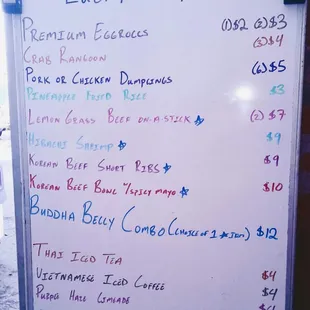 Premium Eggrolls (1)$2 (2)$3
Crab Rangoon (3)$4
Pork or Chicken Dumplings (6)$5
Pineapple Fried Rice $3
Lemon Grass Beef on-a-stick (2) $7
Hibachi Shrimp $9
Korean Beef Short Ribs $9
Korean Beef Bowl w/spicy mayo $10
Buddha Belly Combo (choice of 1 ★ item) $12
Thai Iced Tea $4
Vietnamese Iced Coffee $4
Purple Haze Limeade $4